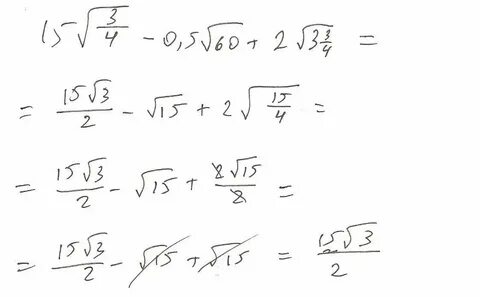 15√(3/4) − 0,5√60 + 2√(3 3/4) =
= 15√3/2 − √15 + 2√(15/4) =
= 15√3/2 − √15 + 2√15/2 =
= 15√3/2 − √15 + √15 = 15√3/2